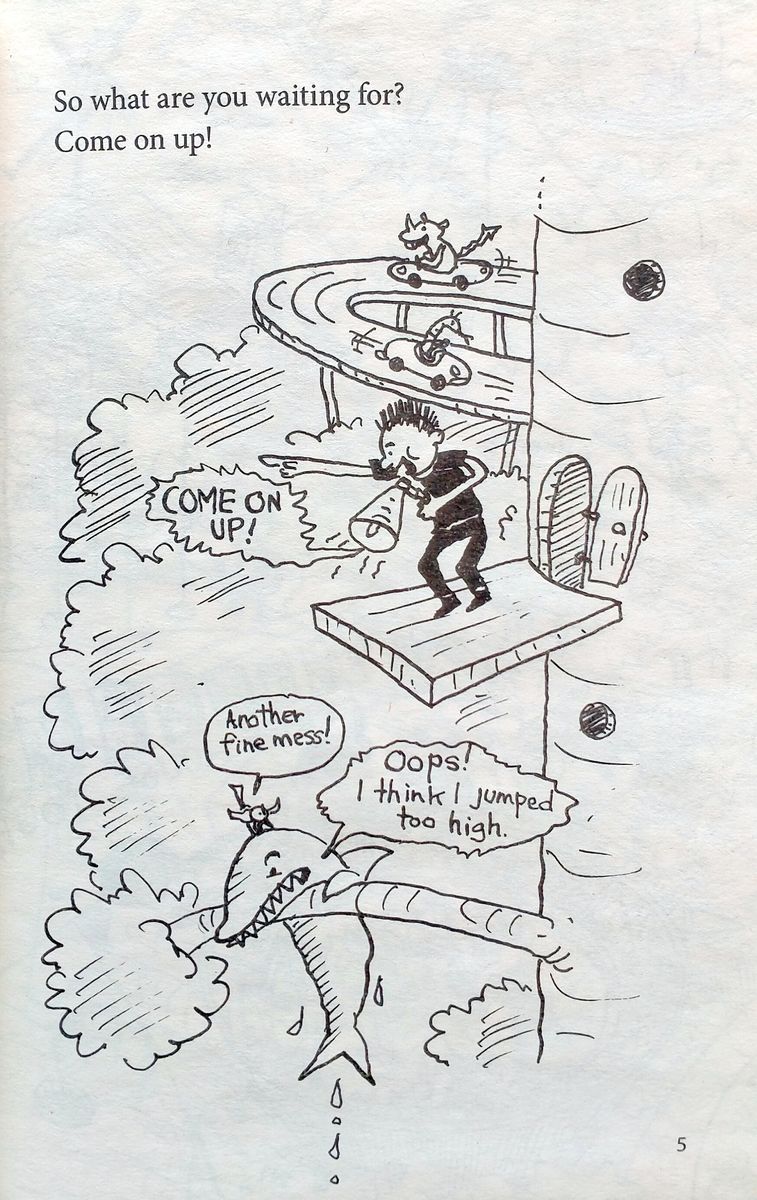 So what are you waiting for?
Come on up!
COME ON
UP!
Another
fine mess!
Oops!
I think I jumped
too high.
5